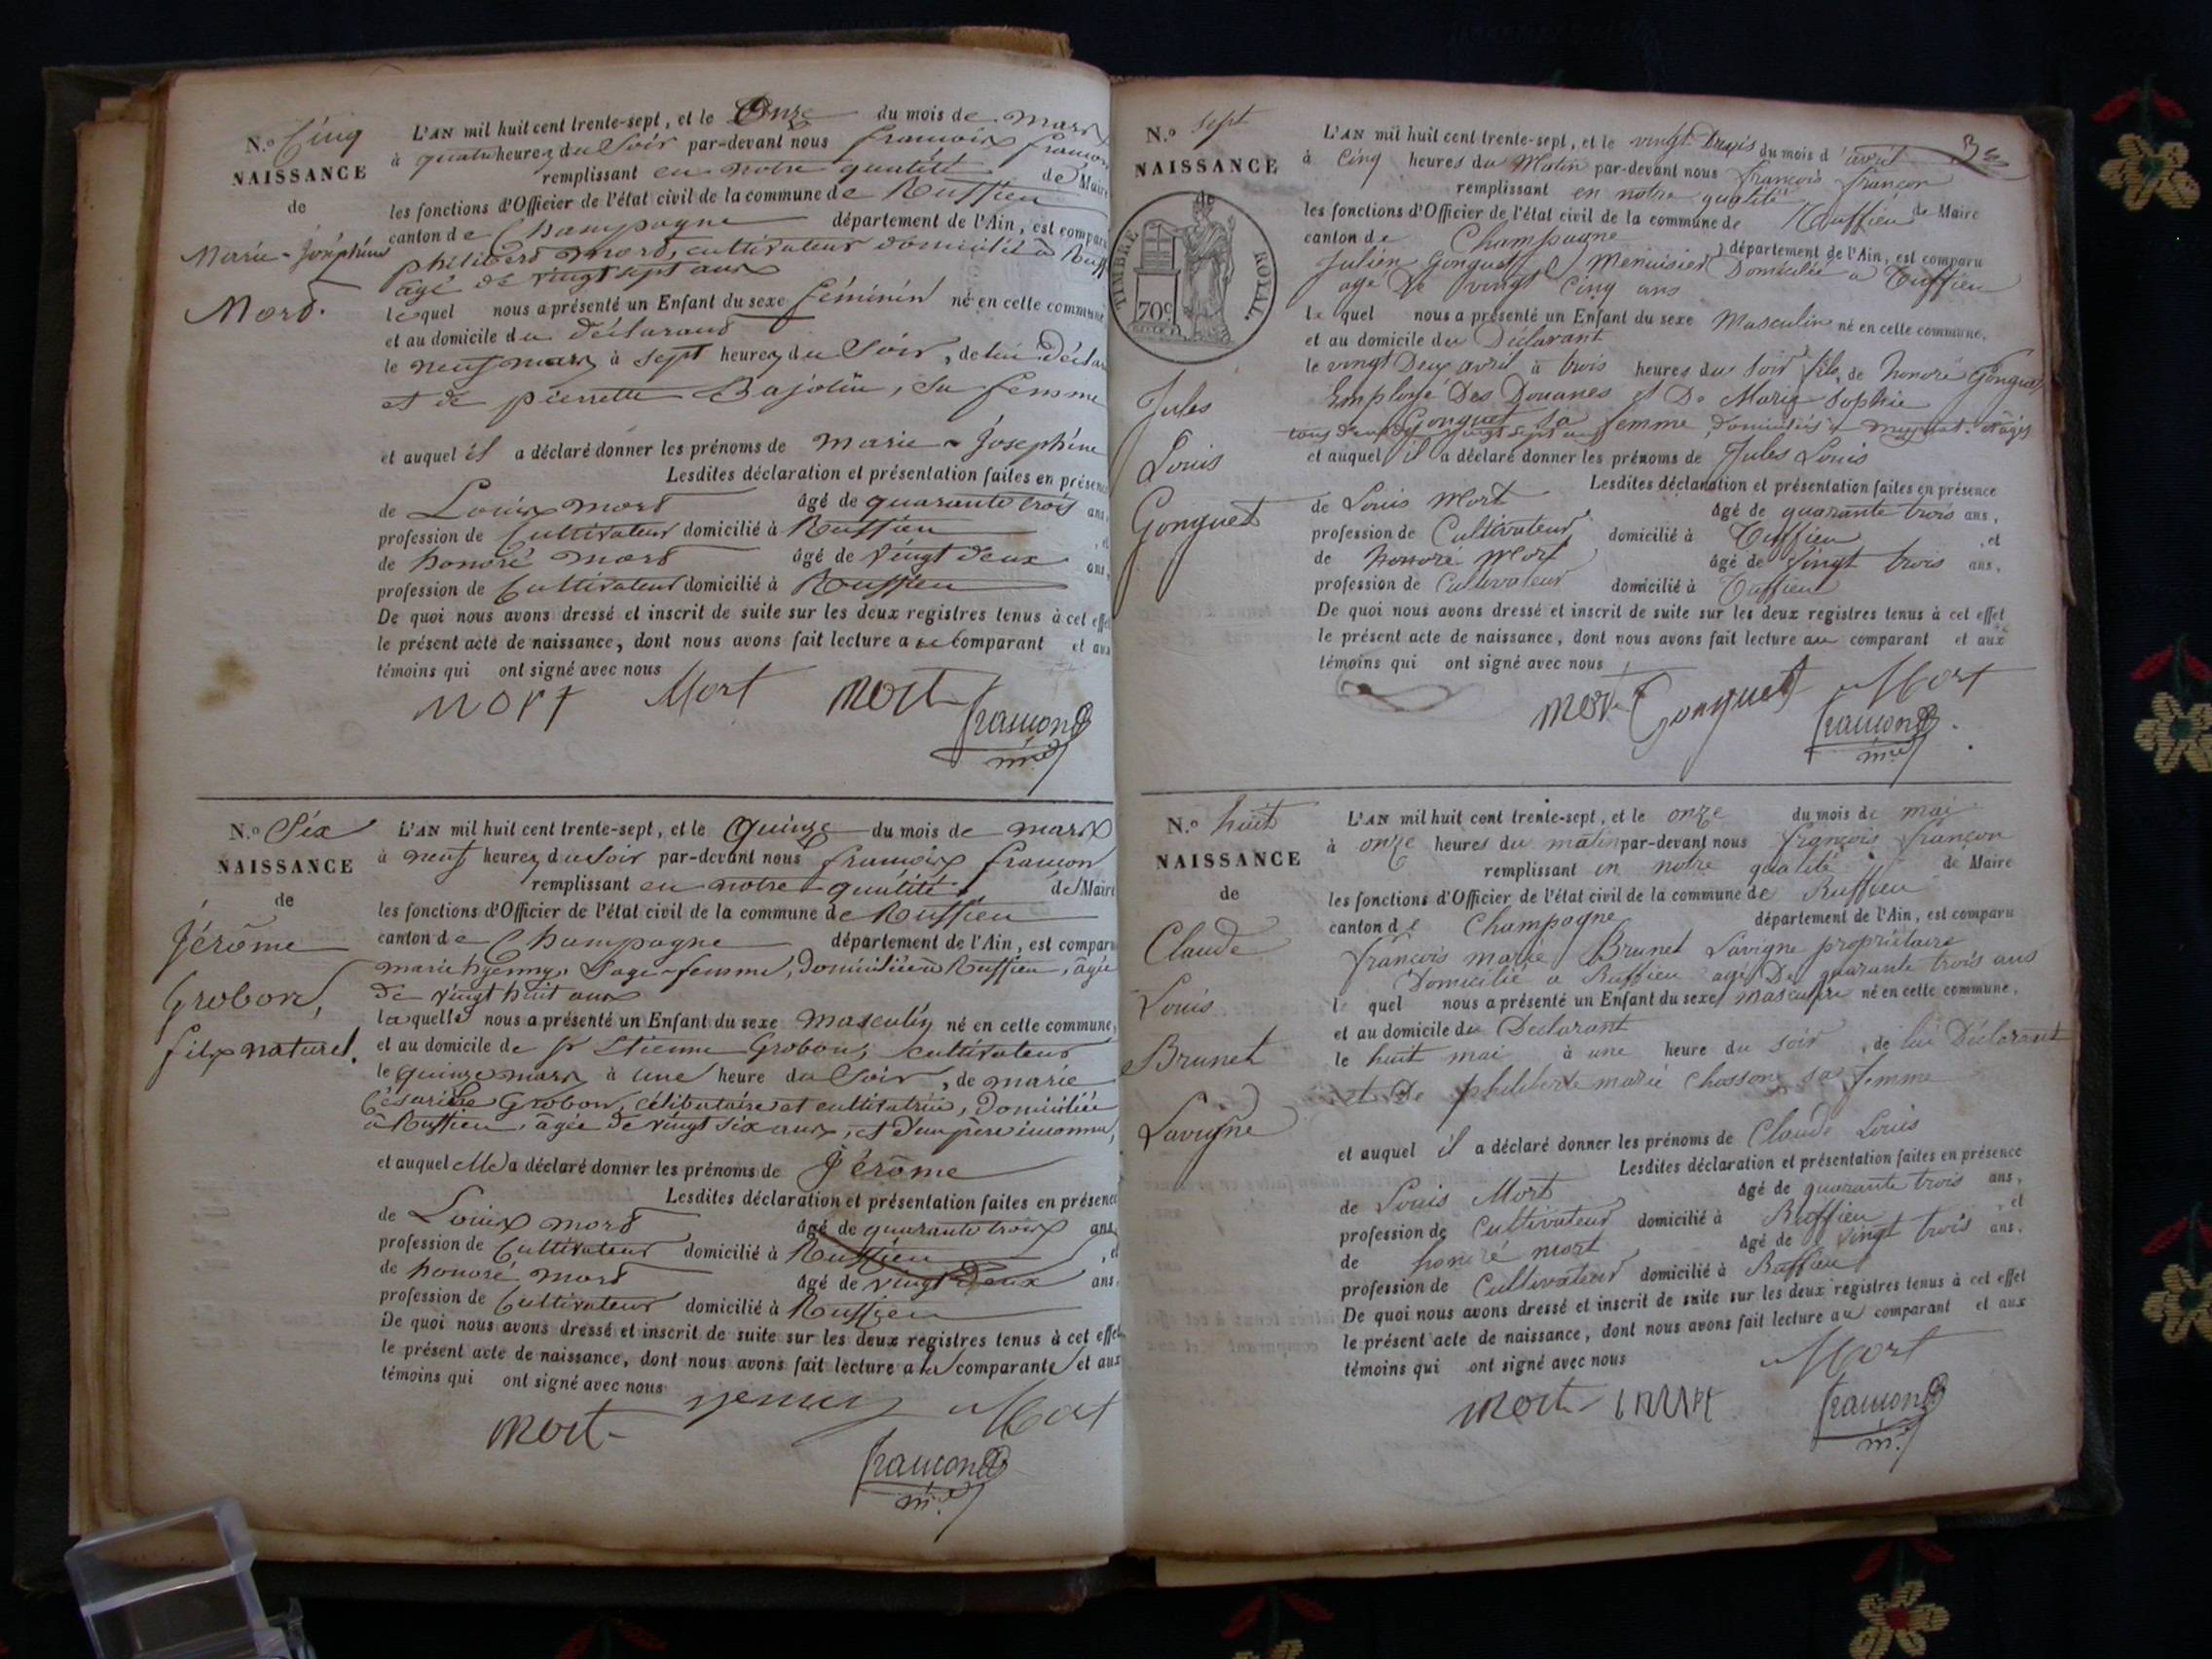 N.o Cinq
NAISSANCE
de
Marie-Joséphine
Mort.
L'AN mil huit cent trente-sept, et le Onze du mois de mars
à quatre heures du Soir par-devant nous françois françon
remplissant en notre qualité de Maire
les fonctions d'Officier de l'état civil de la commune de Ruffieu
canton de Champagne département de l'Ain, est comparu
philibert mort, cultivateur domicilié à Ruff
âgé de vingt sept ans
lequel nous a présenté un Enfant du sexe féminin né en cette commune
et au domicile du déclarant
le neuf mars à sept heures du Soir, de lui Décla
et de pierrette Bajolin, Sa femme
et auquel il a déclaré donner les prénoms de marie-Joséphine
Lesdites déclaration et présentation faites en présence
de Louis mort âgé de quarante trois ans,
profession de Cultivateur domicilié à Ruffieu , et
de honoré mort âgé de vingt deux ans,
profession de Cultivateur domicilié à Ruffieu
De quoi nous avons dressé et inscrit de suite sur les deux registres tenus à cet effet
le présent acte de naissance, dont nous avons fait lecture au Comparant et aux
témoins qui ont signé avec nous
mort Mort mort
françon
m.re
N.o Six
NAISSANCE
de
Jérôme
Grobon,
fils naturel.
L'AN mil huit cent trente-sept, et le Quinze du mois de mars
à neuf heures du Soir par-devant nous françois françon
remplissant en notre qualité de Maire
les fonctions d'Officier de l'état civil de la commune de Ruffieu
canton de Champagne département de l'Ain, est comparu
marie Sage-femme, domiciliée à Ruffieu, âgée
de vingt huit ans
laquelle nous a présenté un Enfant du sexe masculin né en cette commune,
et au domicile de Sr Etienne Grobon, cultivateur
le quinze mars à une heure du Soir, de marie
Césarine Grobon, célibataire et cultivatrice, Domiciliée
à Ruffieu, âgée de vingt six ans, et d'un père inconnu,
et auquel elle a déclaré donner les prénoms de Jérôme
Lesdites déclaration et présentation faites en présence
de Louis mort âgé de quarante trois ans,
profession de Cultivateur domicilié à Ruffieu , et
de honoré mort âgé de vingt deux ans,
profession de Cultivateur domicilié à Ruffieu
De quoi nous avons dressé et inscrit de suite sur les deux registres tenus à cet effet
le présent acte de naissance, dont nous avons fait lecture a la comparante et aux
témoins qui ont signé avec nous
mort Mort
françon
m.re
3
N.o sept
NAISSANCE
de
TIMBRE ROYAL.
70c
Jules
Louis
Gonguet
L'AN mil huit cent trente-sept, et le vingt Trois du mois d'avril
à Cinq heures du Matin par-devant nous françois françon
remplissant en notre qualité de Maire
les fonctions d'Officier de l'état civil de la commune de Ruffieu
canton de Champagne département de l'Ain, est comparu
Julien Gonguet, Menuisier Domicilié a Ruffieu
agé De vingt Cinq ans
le quel nous a présenté un Enfant du sexe Masculin né en cette commune.
et au domicile du Déclarant
le vingt Deux avril à trois heures du soir fils, de honoré Gonguet
Employé Des Douanes et De Marie Sophie
Gonguet sa femme, domiciliés a
et auquel il a déclaré donner les prénoms de Jules Louis
Lesdites déclaration et présentation faites en présence
de Louis Mort âgé de quarante trois ans,
profession de Cultivateur domicilié à Ruffieu , et
de honoré Mort âgé de vingt trois ans,
profession de Cultivateur domicilié à Ruffieu
De quoi nous avons dressé et inscrit de suite sur les deux registres tenus à cet effet
le présent acte de naissance, dont nous avons fait lecture au comparant et aux
témoins qui ont signé avec nous
mort Gonguet Mort
françon
m.re
N.o huit
NAISSANCE
de
Claude
Louis
Brunet
Lavigne
L'AN mil huit cent trente-sept, et le onze du mois de mai
à onze heures du matin par-devant nous françois françon
remplissant en notre qualité de Maire
les fonctions d'Officier de l'état civil de la commune de Ruffieu
canton de Champagne département de l'Ain, est comparu
françois marie Brunet Lavigne propriétaire
Domicilié a Ruffieu agé De quarante trois ans
le quel nous a présenté un Enfant du sexe masculin né en cette commune,
et au domicile du Déclarant
le huit mai à une heure du soir, de lui Déclarant
et De philiberte marie Chosson sa femme
et auquel il a déclaré donner les prénoms de Claude Louis
Lesdites déclaration et présentation faites en présence
de Louis Mort âgé de quarante trois ans,
profession de Cultivateur domicilié à Ruffieu , et
de honoré mort âgé de vingt trois ans,
profession de Cultivateur domicilié à Ruffieu
De quoi nous avons dressé et inscrit de suite sur les deux registres tenus à cet effet
le présent acte de naissance, dont nous avons fait lecture au comparant et aux
témoins qui ont signé avec nous
Mort
mort
françon
m.re